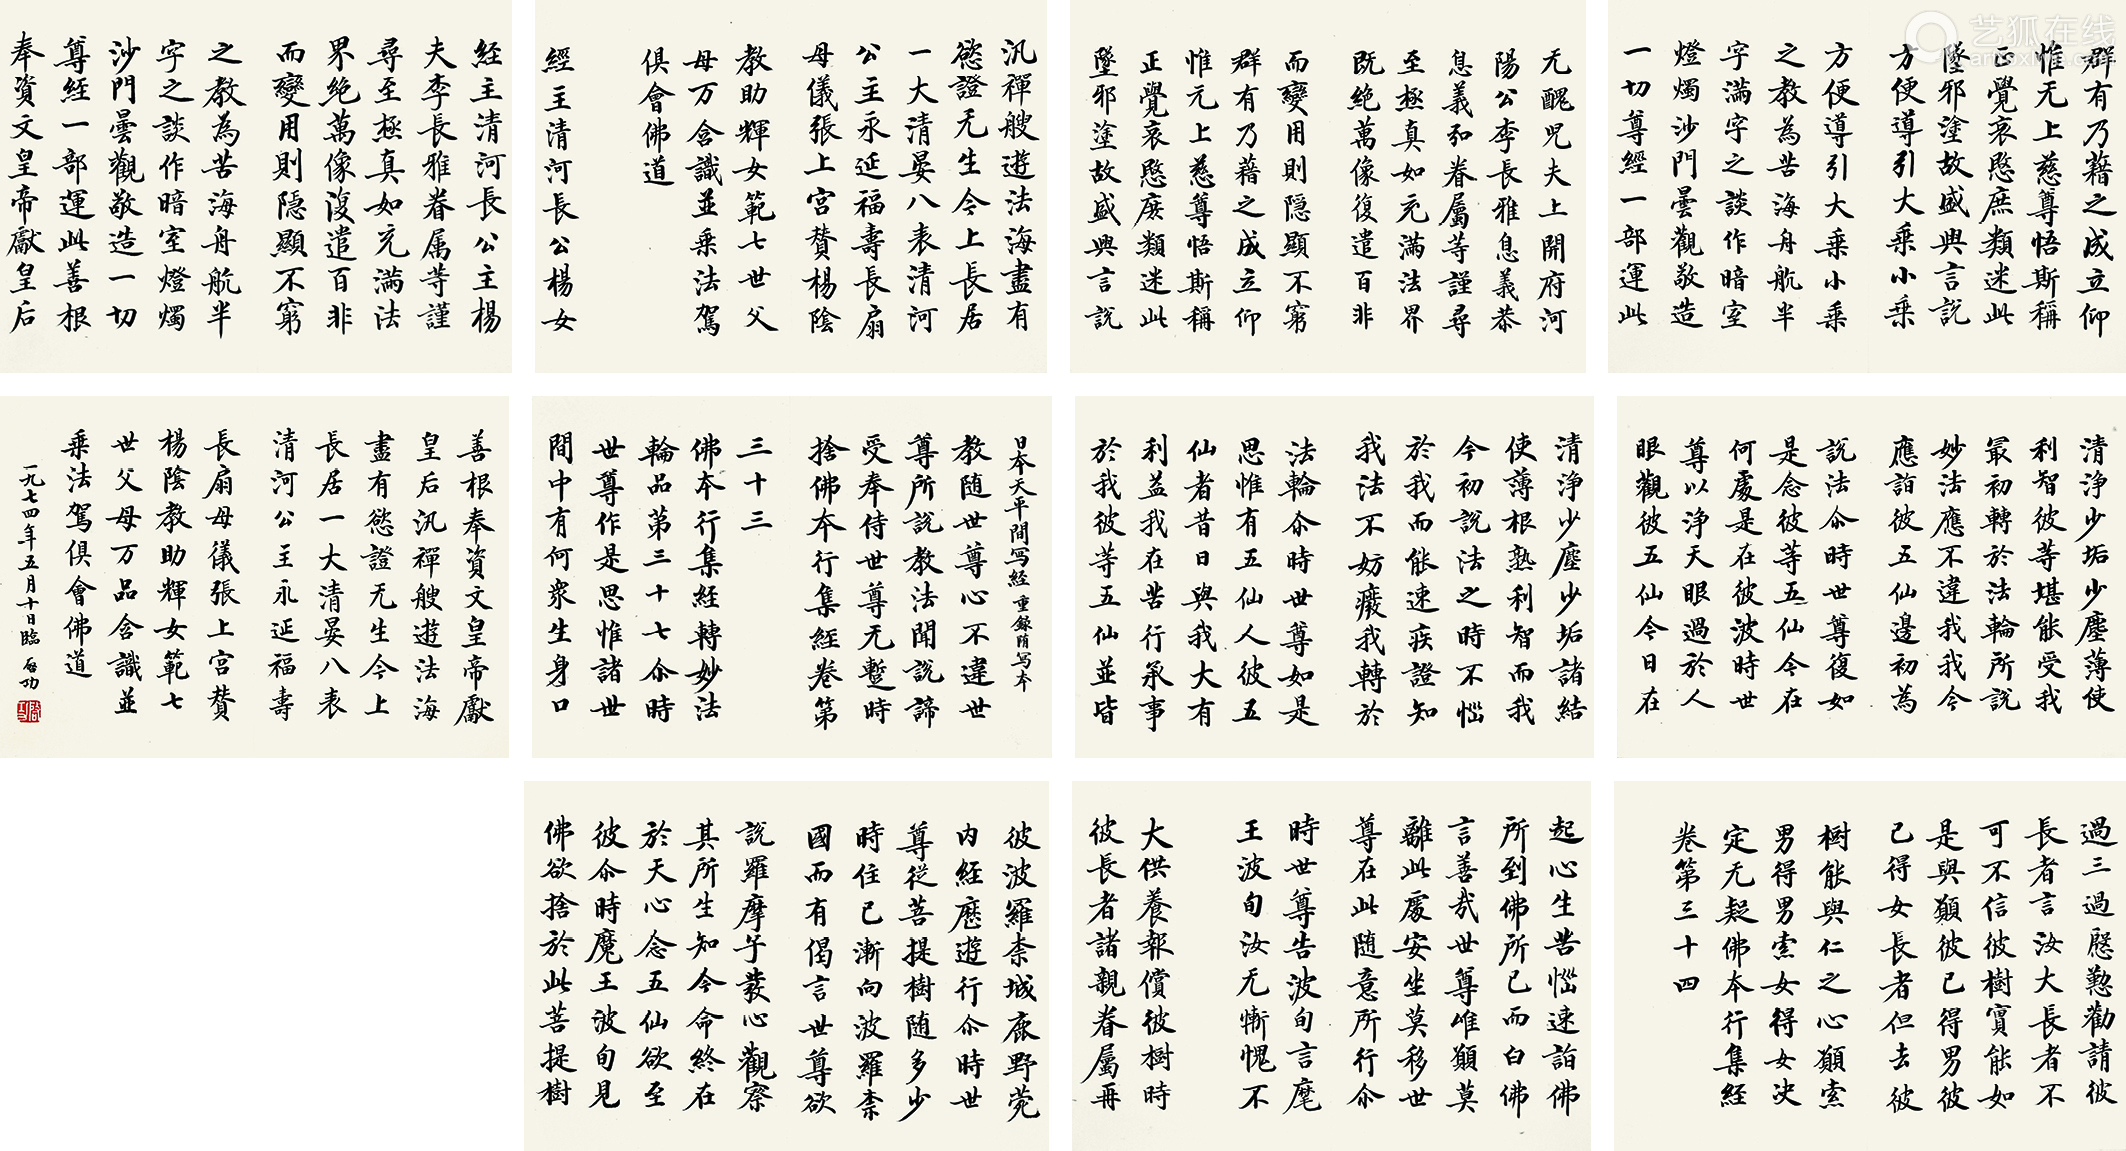 艺狐在线
artfoxlive.com
群有乃藉之成立仰
惟无上慈尊悟斯稱
正覺哀愍庶類迷此
墜邪塗故盛興言說
方便導引大乘小乘
方便導引大乘小乘
之教為苦海舟航半
字滿字之談作暗室
燈燭沙門曇觀敬造
一切尊經一部運此
无醜兕夫上開府河
陽公李長雅息義恭
息義和眷屬等謹尋
至極真如充滿法界
既絶萬像復遣百非
而變用則隱顯不窮
群有乃藉之成立仰
惟无上慈尊悟斯稱
正覺哀愍庶類迷此
墜邪塗故盛興言說
汎禪艘遊法海盡有
慾證无生今上長居
一大清晏八表清河
公主永延福壽長扇
母儀張上宮贊楊陰
教助輝女範七世父
母万含識並乘法駕
俱會佛道
經主清河長公楊女
経主清河長公主楊
夫李長雅眷属等謹
尋至極真如充滿法
界絶萬像復遣百非
而變用則隱顯不窮
之教為苦海舟航半
字之談作暗室燈燭
沙門曇觀敬造一切
尊経一部運此善根
奉資文皇帝獻皇后
清淨少垢少塵薄使
利智彼等堪能受我
最初轉於法輪所說
妙法應不違我我今
應詣彼五仙邊初為
說法尒時世尊復如
是念彼等五仙今在
何處是在彼波時世
尊以淨天眼過於人
眼觀彼五仙今日在
清淨少塵少垢諸結
使薄根熟利智而我
今初說法之時不惱
於我而能速疾證知
我法不妨癈我轉於
法輪尒時世尊如是
思惟有五仙人彼五
仙者昔日與我大有
利益我在苦行承事
於我彼等五仙並皆
日本天平間寫経 重録隋寫本
教随世尊心不違世
尊所說教法聞說諦
受奉侍世尊无暫時
捨佛本行集經卷第
三十三
佛本行集經轉妙法
輪品第三十七尒時
世尊作是思惟諸世
間中有何衆生身口
善根奉資文皇帝獻
皇后汎禪艘遊法海
盡有慾證无生今上
長居一大清晏八表
清河公主永延福壽
長扇母儀張上宮贊
楊陰教助輝女範七
世父母万品含識並
乘法駕俱會佛道
一九七四年五月十日臨 啟功
過三過慇懃勸請彼
長者言汝大長者不
可不信彼樹實能如
是與願彼已得男彼
已得女長者但去彼
樹能與仁之心願索
男得男索女得女决
定无疑佛本行集経
卷第三十四
起心生苦惱速詣佛
所到佛所已而白佛
言善哉世尊唯願莫
離此處安坐莫移世
尊在此随意所行尒
時世尊告波旬言魔
王波旬汝无慚愧不
大供養報償彼樹時
彼長者諸親眷屬再
彼波羅柰城鹿野菀
内経歷遊行尒時世
尊從菩提樹随多少
時住已漸向波羅柰
國而有偈言世尊欲
說羅摩子發心觀察
其所生知今命終在
於天心念五仙欲至
彼尒時魔王波旬見
佛欲捨於此菩提樹